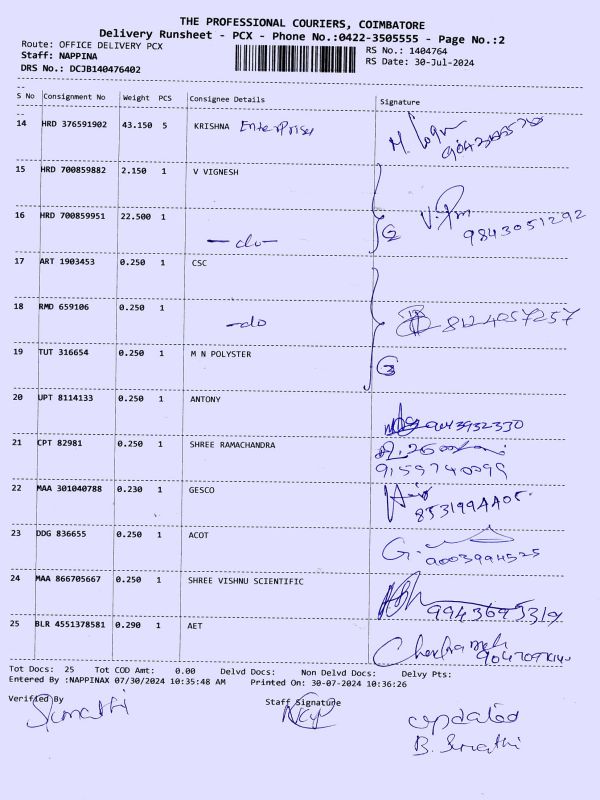 THE PROFESSIONAL COURIERS, COIMBATORE
Delivery Runsheet - PCX - Phone No.:0422-3505555 - Page No.:2
Route: OFFICE DELIVERY PCX
RS No.: 1404764
Staff: NAPPINA
RS Date: 30-Jul-2024
DRS No.: DCJB140476402
S No Consignment No Weight PCS Consignee Details Signature
14 HRD 376591902 43.150 5 KRISHNA Enterprises
15 HRD 700859882 2.150 1 V VIGNESH
16 HRD 700859951 22.500 1 9843051292
-do-
17 ART 1903453 0.250 1 CSC
18 RMD 659106 0.250 1 8124057257
-do
19 TUT 316654 0.250 1 M N POLYSTER
20 UPT 8114133 0.250 1 ANTONY
21 CPT 82981 0.250 1 SHREE RAMACHANDRA
9159740099
22 MAA 301040788 0.230 1 GESCO
23 DDG 836655 0.250 1 ACOT
9003994525
24 MAA 866705667 0.250 1 SHREE VISHNU SCIENTIFIC
25 BLR 4551378581 0.290 1 AET
Tot Docs: 25 Tot COD Amt: 0.00 Delvd Docs: Non Delvd Docs: Delvy Pts:
Entered By :NAPPINAX 07/30/2024 10:35:48 AM Printed On: 30-07-2024 10:36:26
Verified By Staff Signature
Sumathi
updated
B. Sumathi